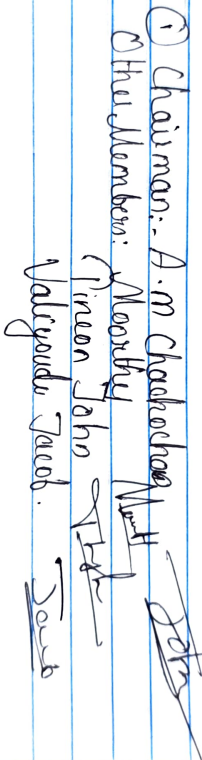 ① Chairman:- A.M Chachochan
Other Members: Moorthy
Pineon John
Valiyoudi Jacob.